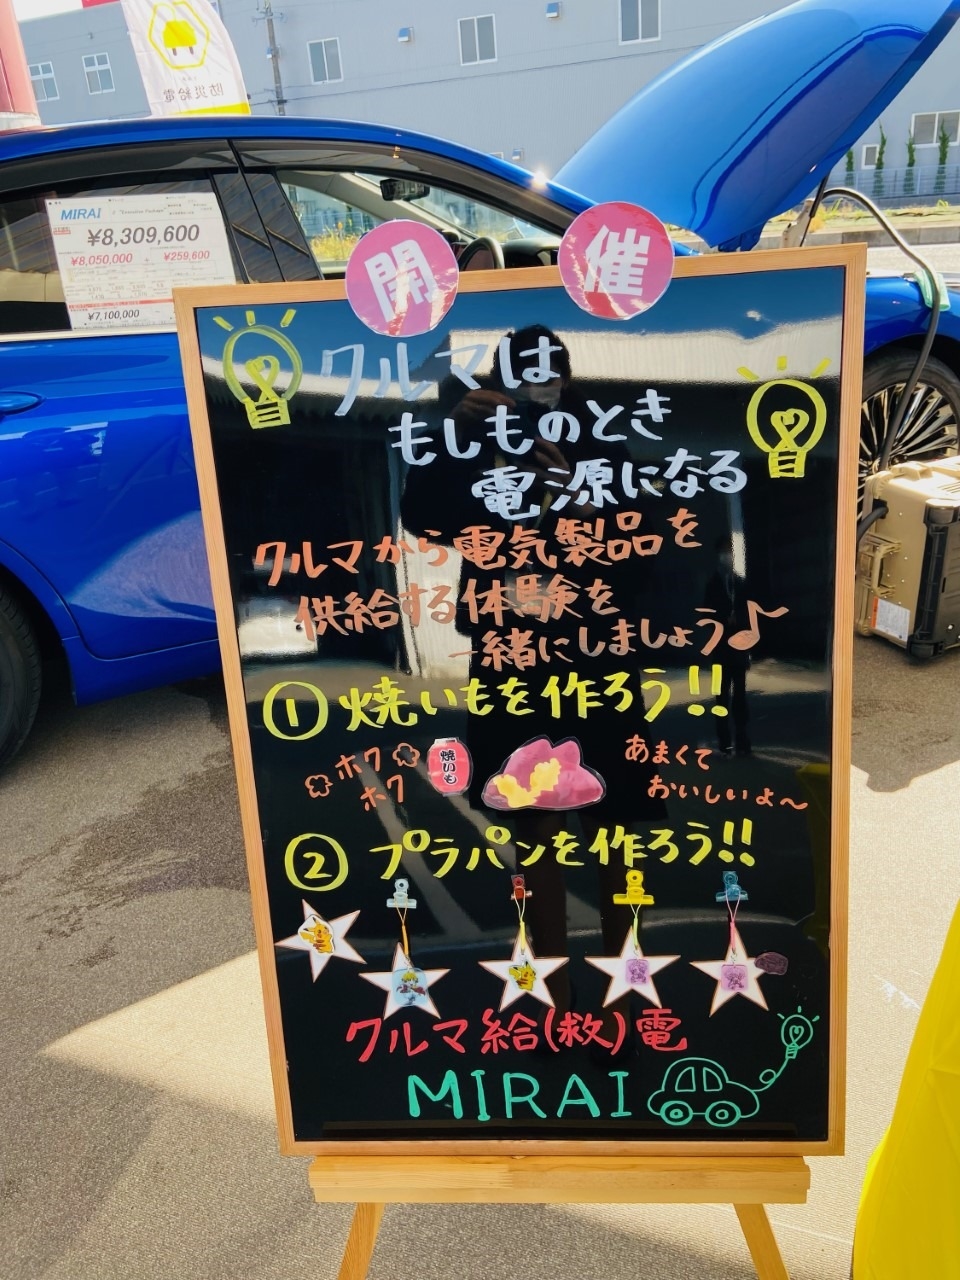 防災給電
MIRAI
"Executive Package"
¥8,309,600
¥8,050,000
¥259,600
¥7,100,000
開催
クルマは
もしものとき
電源になる
クルマから電気製品を
供給する体験を
一緒にしましょう♪
①焼いもを作ろう!!
ホクホク
焼いも
あまくて
おいしいよ〜
②プラパンを作ろう!!
クルマ給(救)電
MIRAI